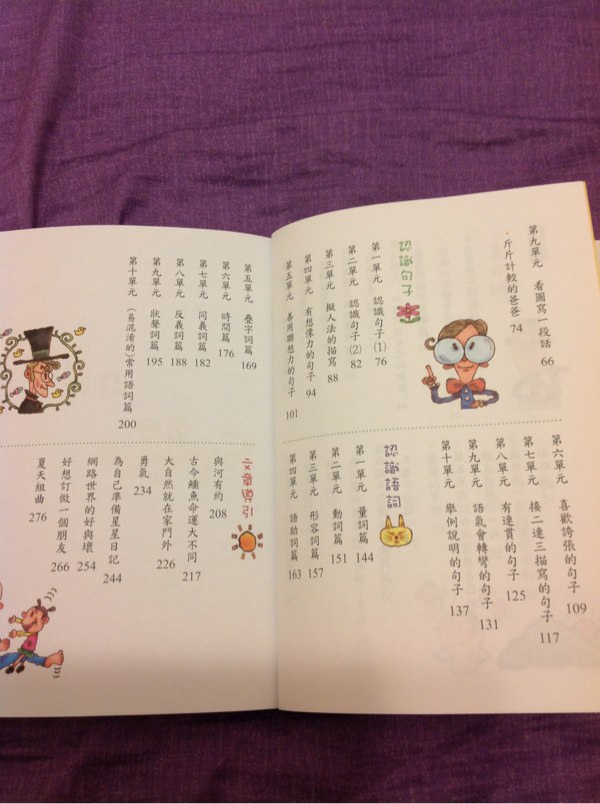 第九單元 看圖寫一段話 66
．斤斤計較的爸爸 74
認識句子
第一單元 認識句子(1) 76
第二單元 認識句子(2) 82
第三單元 擬人法的描寫 88
第四單元 有想像力的句子 94
第五單元 善用聯想力的句子 101
第六單元 喜歡誇張的句子 109
第七單元 接二連三描寫的句子 117
第八單元 有連貫的句子 125
第九單元 語氣會轉彎的句子 131
第十單元 舉例說明的句子 137
認識語詞
第一單元 量詞篇 144
第二單元 動詞篇 151
第三單元 形容詞篇 157
第四單元 語助詞篇 163
第五單元 疊字詞篇 169
第六單元 時間篇 176
第七單元 同義詞篇 182
第八單元 反義詞篇 188
第九單元 狀聲詞篇 195
第十單元 (易混淆的)常用語詞篇 200
文章導引
與河有約 208
古今鱷魚命運大不同 217
大自然就在家門外 226
勇氣 234
為自己準備星星日記 244
網路世界的好與壞 254
好想訂做一個朋友 266
夏天組曲 276